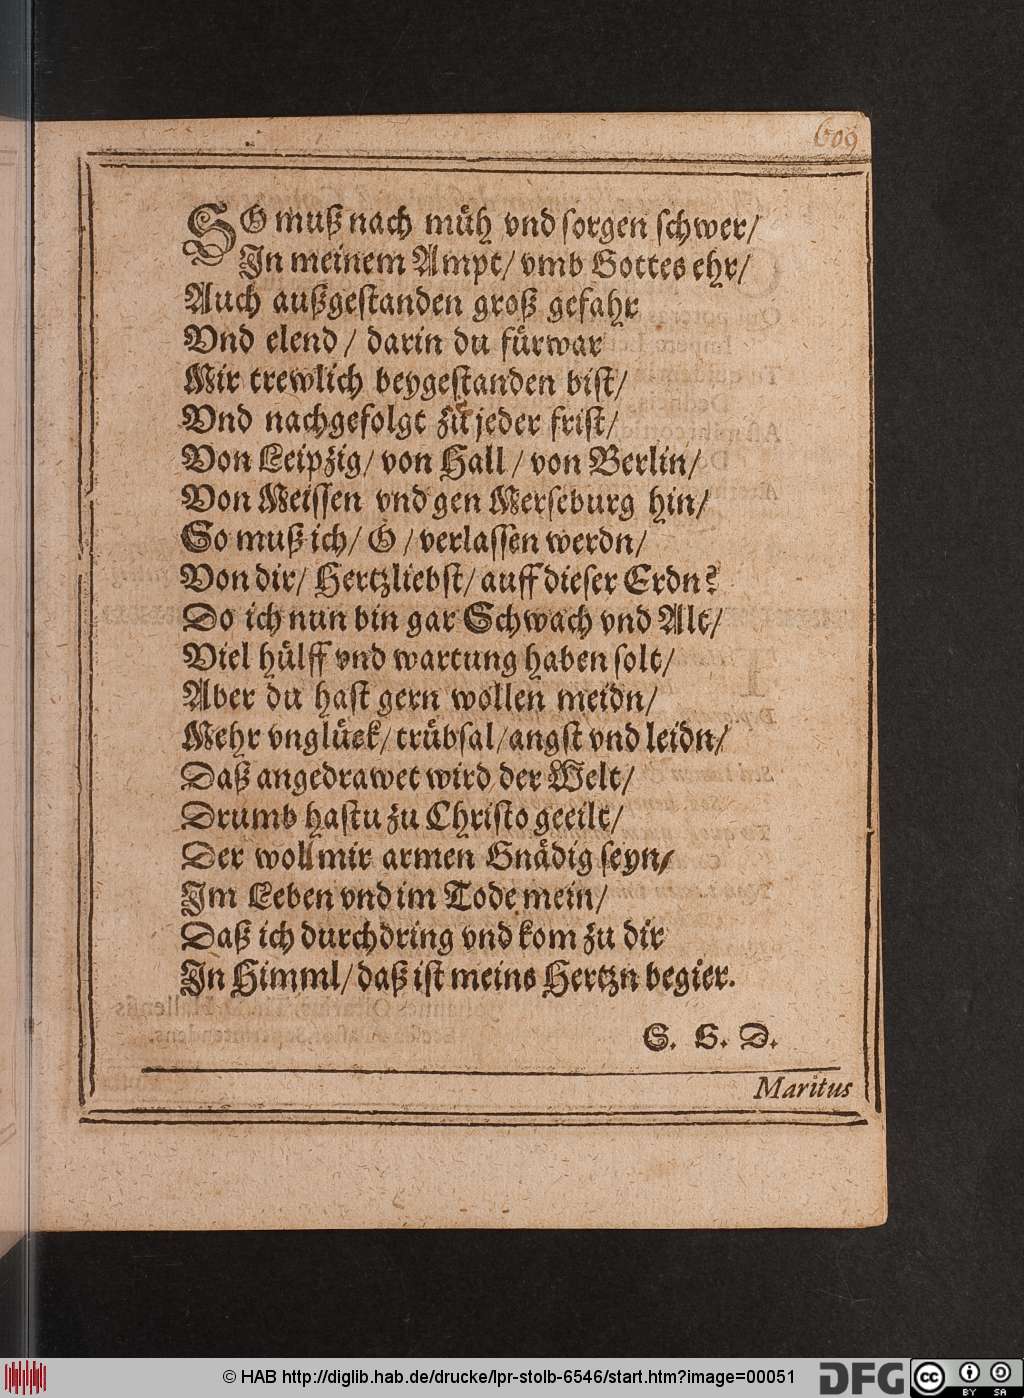 609
SO muß nach müh vnd sorgen schwer/
In meinem Ampt/ vmb Gottes ehr/
Auch außgestanden groß gefahr
Vnd elend / darin du fürwar
Mir trewlich beygestanden bist/
Vnd nachgefolgt zu jeder frist/
Von Leipzig/ von Hall / von Berlin/
Von Meissen vnd gen Merseburg hin/
So muß ich/ O / verlassen werdn/
Von dir/ Hertzliebst/ auff dieser Erdn?
Do ich nun bin gar Schwach vnd Alt/
Viel hülff vnd wartung haben solt/
Aber du hast gern wollen meidn/
Mehr vnglück/ trübsal/ angst vnd leidn/
Daß angedrawet wird der Welt/
Drumb hastu zu Christo geeilt/
Der woll mir armen Gnädig seyn/
Im Leben vnd im Tode mein/
Daß ich durchdring vnd kom zu dir
In Himml/ daß ist meins Hertzn begier.
S. G. D.
Maritus
© HAB http://diglib.hab.de/drucke/lpr-stolb-6546/start.htm?image=00051
DFG cc BY SA